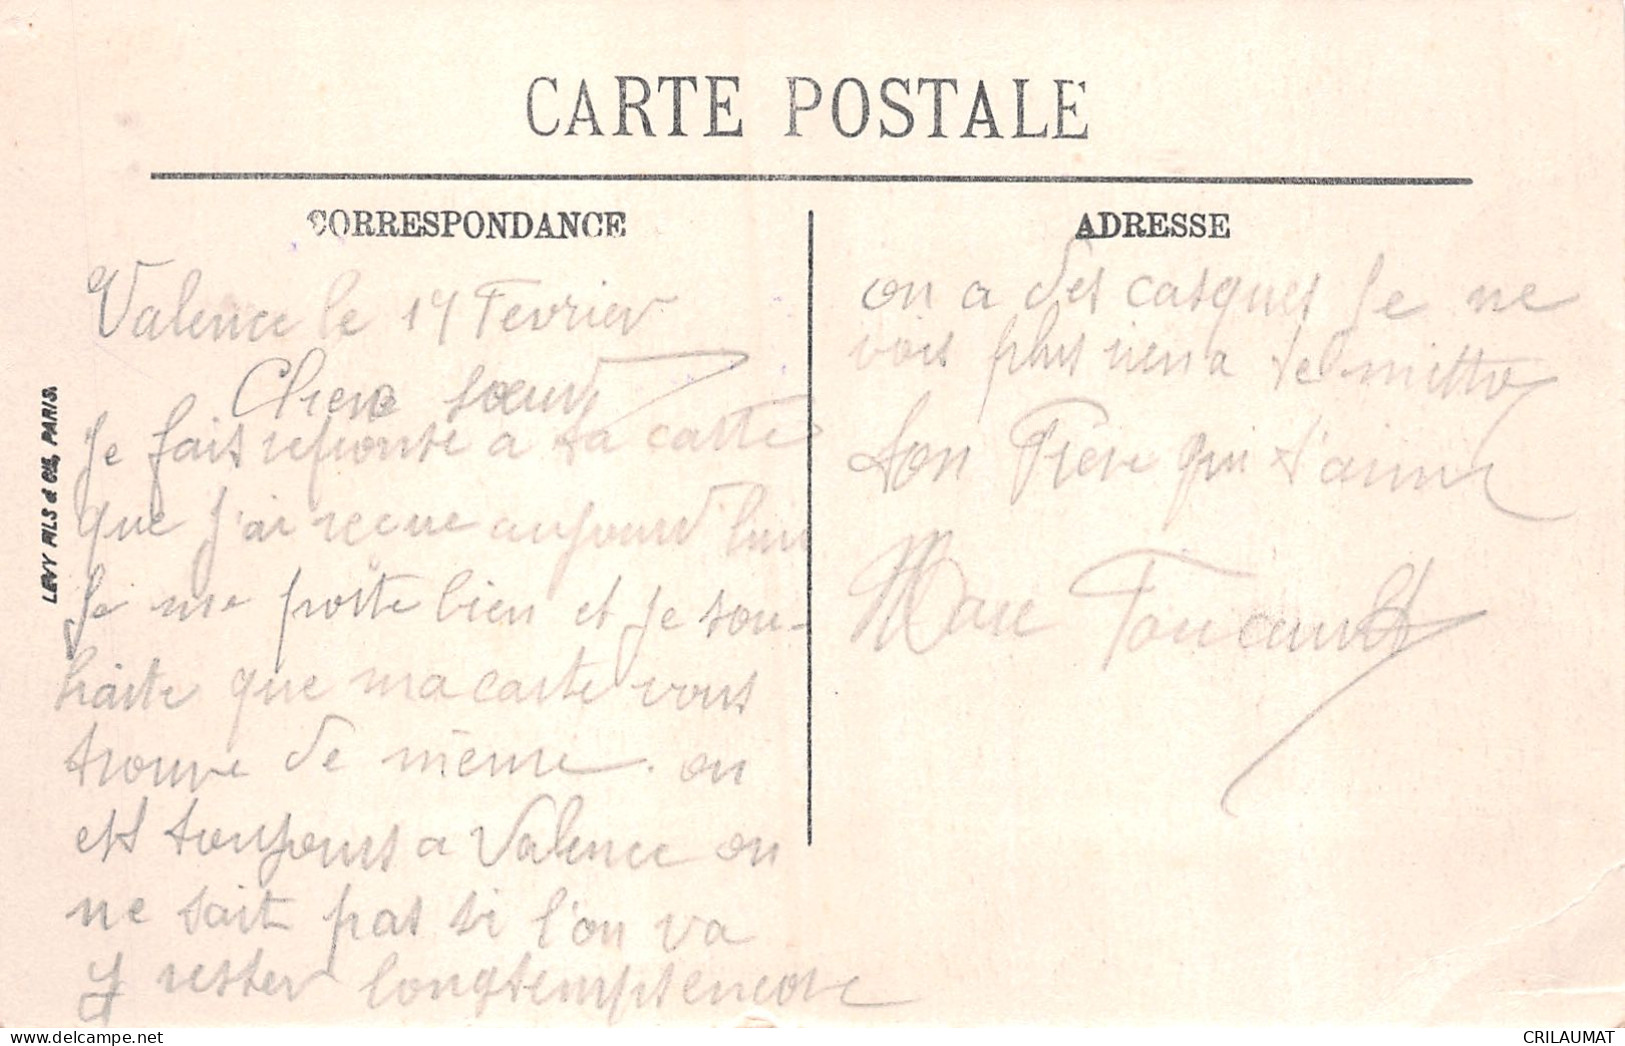 CARTE POSTALE
CORRESPONDANCE
Valence le 14 Fevrier
Chere sœur
Je fais reponse a ta carte
que j'ai reçue aujourd'hui
Je me porte bien et je sou-
haite que ma carte vous
trouve de même. on
est toujours a Valence on
ne sait pas si l'on va
y rester longtemps encore
ADRESSE
on a des casques Je ne
vois plus rien a te mettre
ton Frere qui t'aime
Marc Foucault
LEVY FILS & Cie, PARIS.
delcampe.net
CRILAUMAT